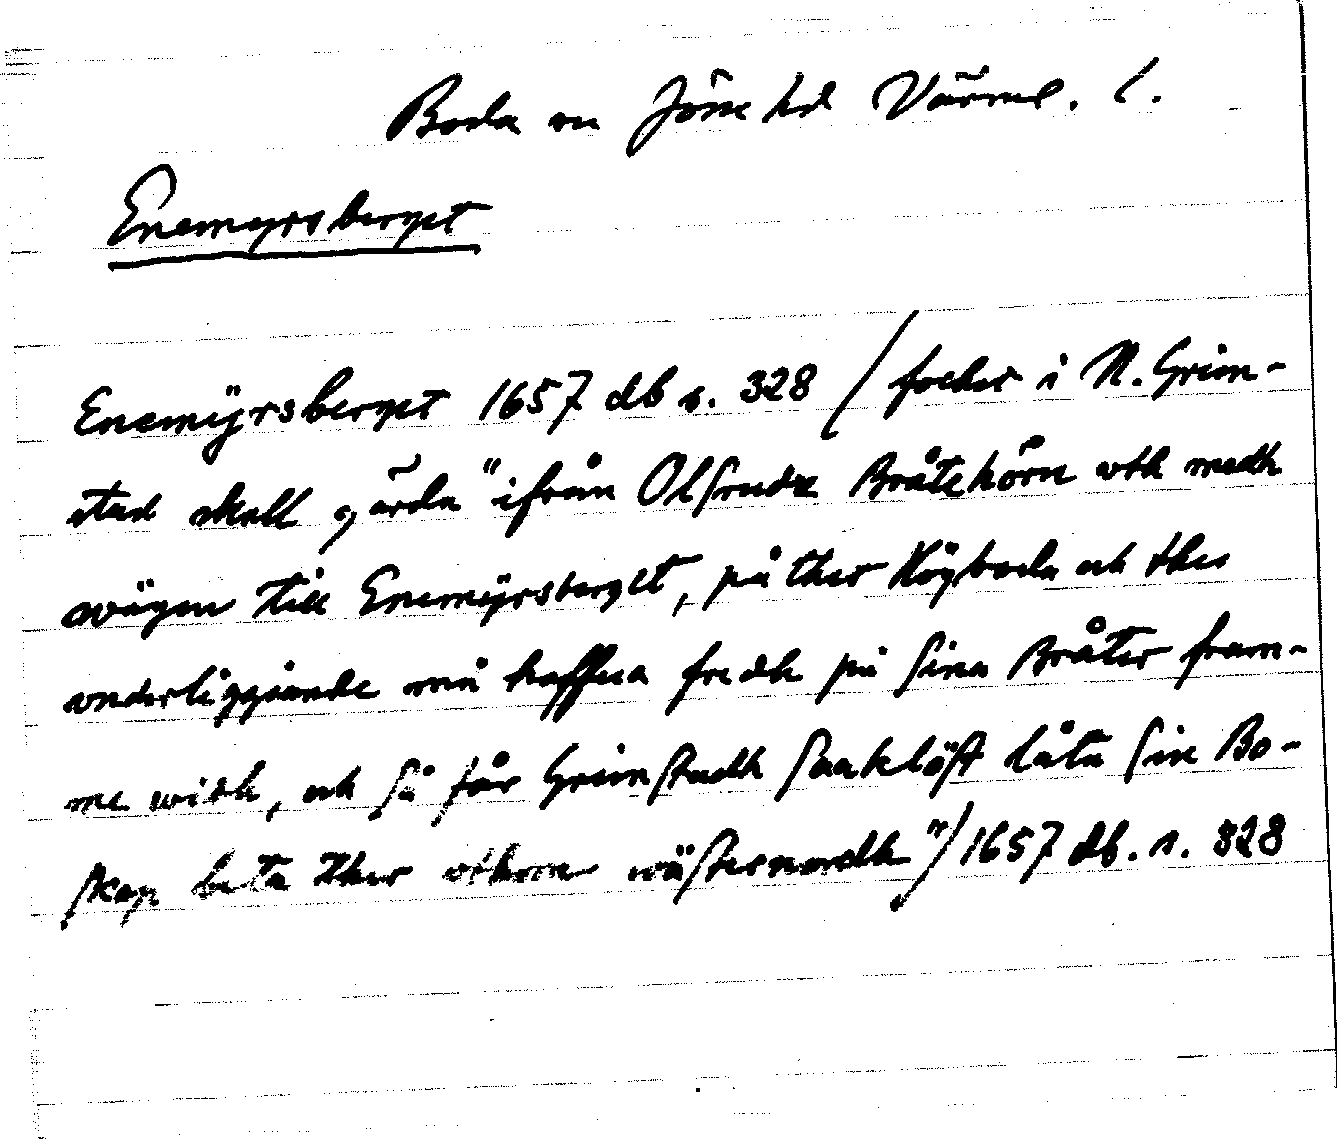 Boda sn Jösse hd Värml. l.
Enemyrsberget
Enemÿrsberget 1657 db s. 328 / folket i N. Grim-
stad skall gärda "ifrån Olsrudz Bråtehörn wth medh
wägen till Enemÿrsberget, på ther Högboda och the
vnderliggiande må haffua fredh på sina Bråter fram-
me widh, och så får Grimstadh saaklöst låta sin Bo-
skap beta ther vthom wästernordh"/ 1657 db. s. 328